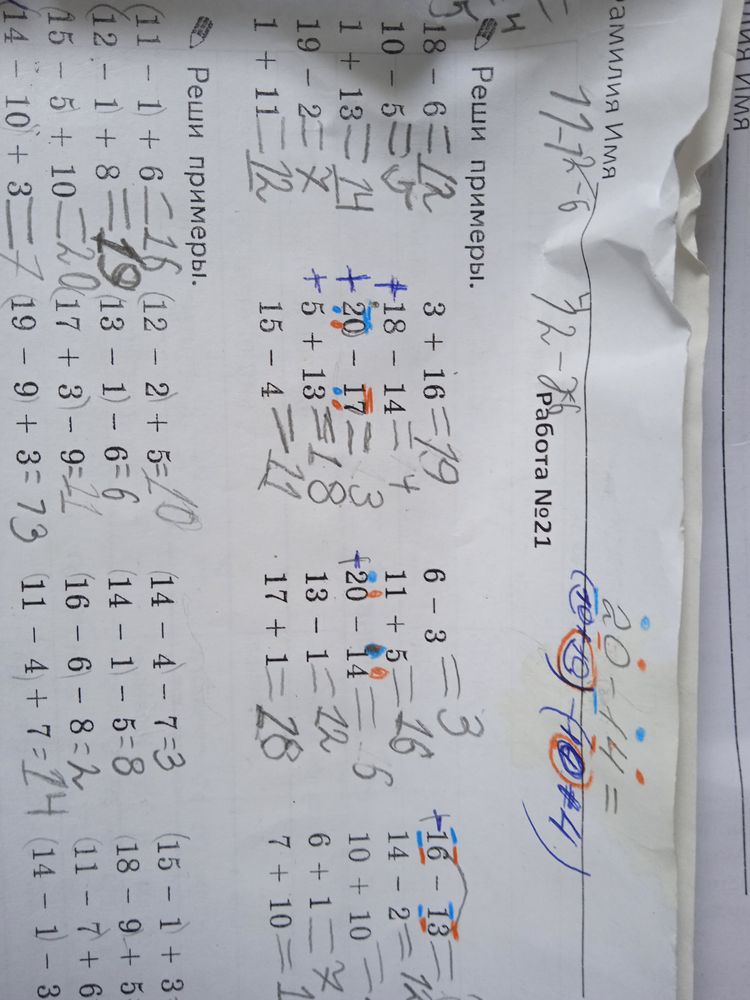 амилия Имя
20-14=
(10+10)-(10+4)
Работа №21
Реши примеры.
18 − 6=12 3 + 16=19 6 − 3=3 +16 − 13=
10 − 5=5 +18 − 14=4 11 + 5=16 14 − 2=12
1 + 13=14 +20 − 17=3 +20 − 14=6 10 + 10=
19 − 2=7 +5 + 13=18 13 − 1=12 6 + 1=7
1 + 11=12 15 − 4=11 17 + 1=18 7 + 10=1
Реши примеры.
(11 − 1) + 6=16 (12 − 2) + 5=10 (14 − 4) − 7=3 (15 − 1) + 3=
(12 − 1) + 8=19 (13 − 1) − 6=6 (14 − 1) − 5=8 (18 − 9) + 5=
(15 − 5) + 10=20 (17 + 3) − 9=11 (16 − 6) − 8=2 (11 − 7) + 6
(14 − 10) + 3=7 (19 − 9) + 3=13 (11 − 4) + 7=14 (14 − 1) − 3